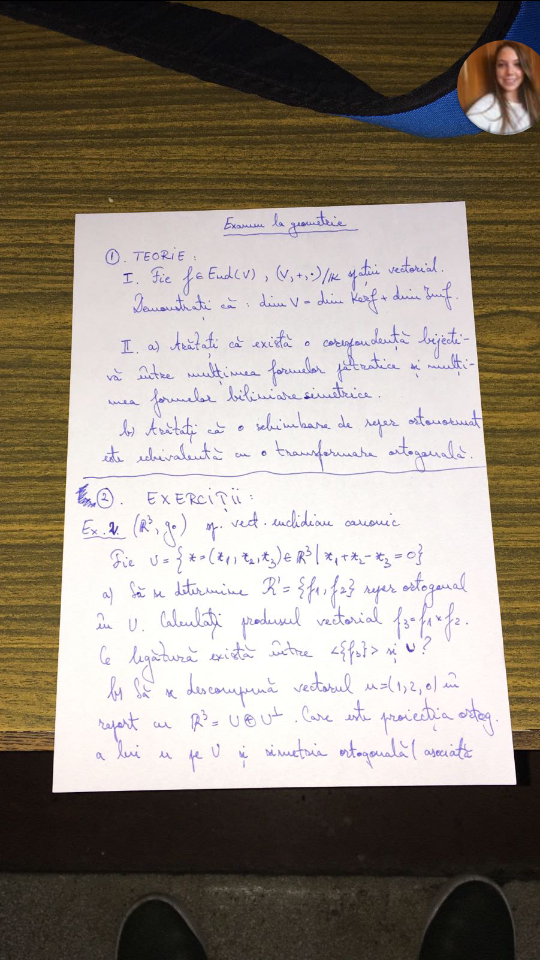 Examen la geometrie
① . TEORIE :
I. Fie f ∈ End(V) , (V,+,·)/IK spațiu vectorial.
Demonstrați că : dim V = dim Kerf + dim Imf.
II. a) Arătați că există o corespondență bijecti-
vă între mulțimea formelor pătratice și mulți-
mea formelor biliniare simetrice.
b) Arătați că o schimbare de reper ortonormat
este echivalentă cu o transformare ortogonală.
②. EXERCIȚII :
Ex. 1. (R³, g₀) sp. vect. euclidian canonic
Fie U = { x = (x₁, x₂, x₃) ∈ R³ | x₁ + x₂ - x₃ = 0}
a) Să se determine R' = {f₁, f₂} reper ortogonal
în U. Calculați produsul vectorial f₃ = f₁ × f₂.
Ce legătură există între <{f₃}> și U ?
b) Să se descompună vectorul u = (1, 2, 0) în
raport cu R³ = U ⊕ U⊥ . Care este proiecția ortog.
a lui u pe U și simetria ortogonală ( asociată